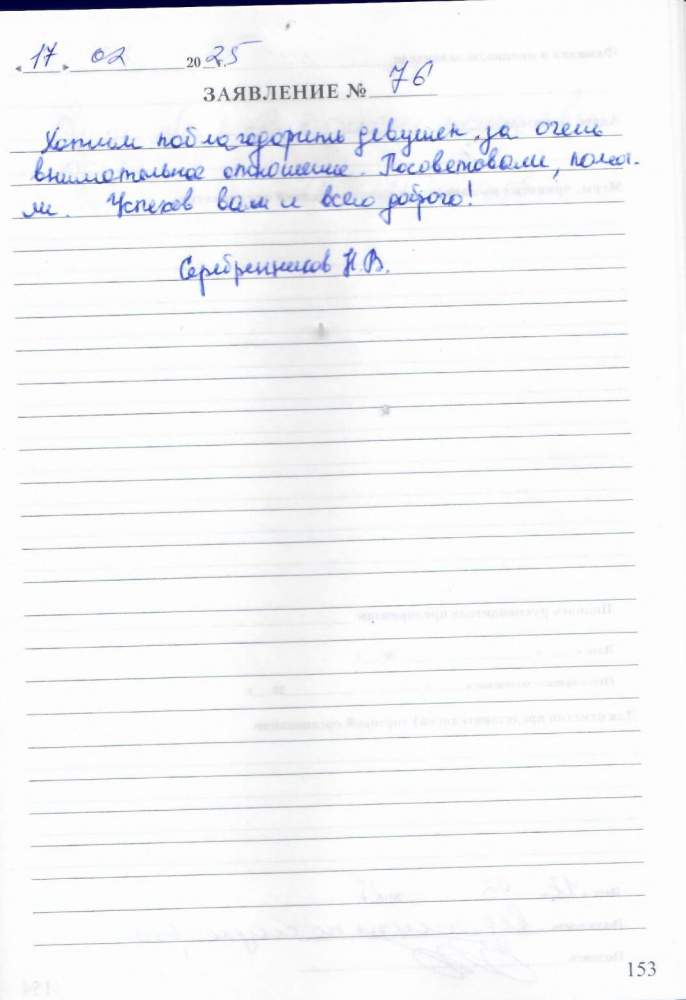 « 17 » 02 2025
ЗАЯВЛЕНИЕ № 76
Хотим поблагодарить девушек за очень
внимательное отношение. Посоветовали, помог-
ли. Успехов вам и всего доброго!
Серебренников Н.В.
153